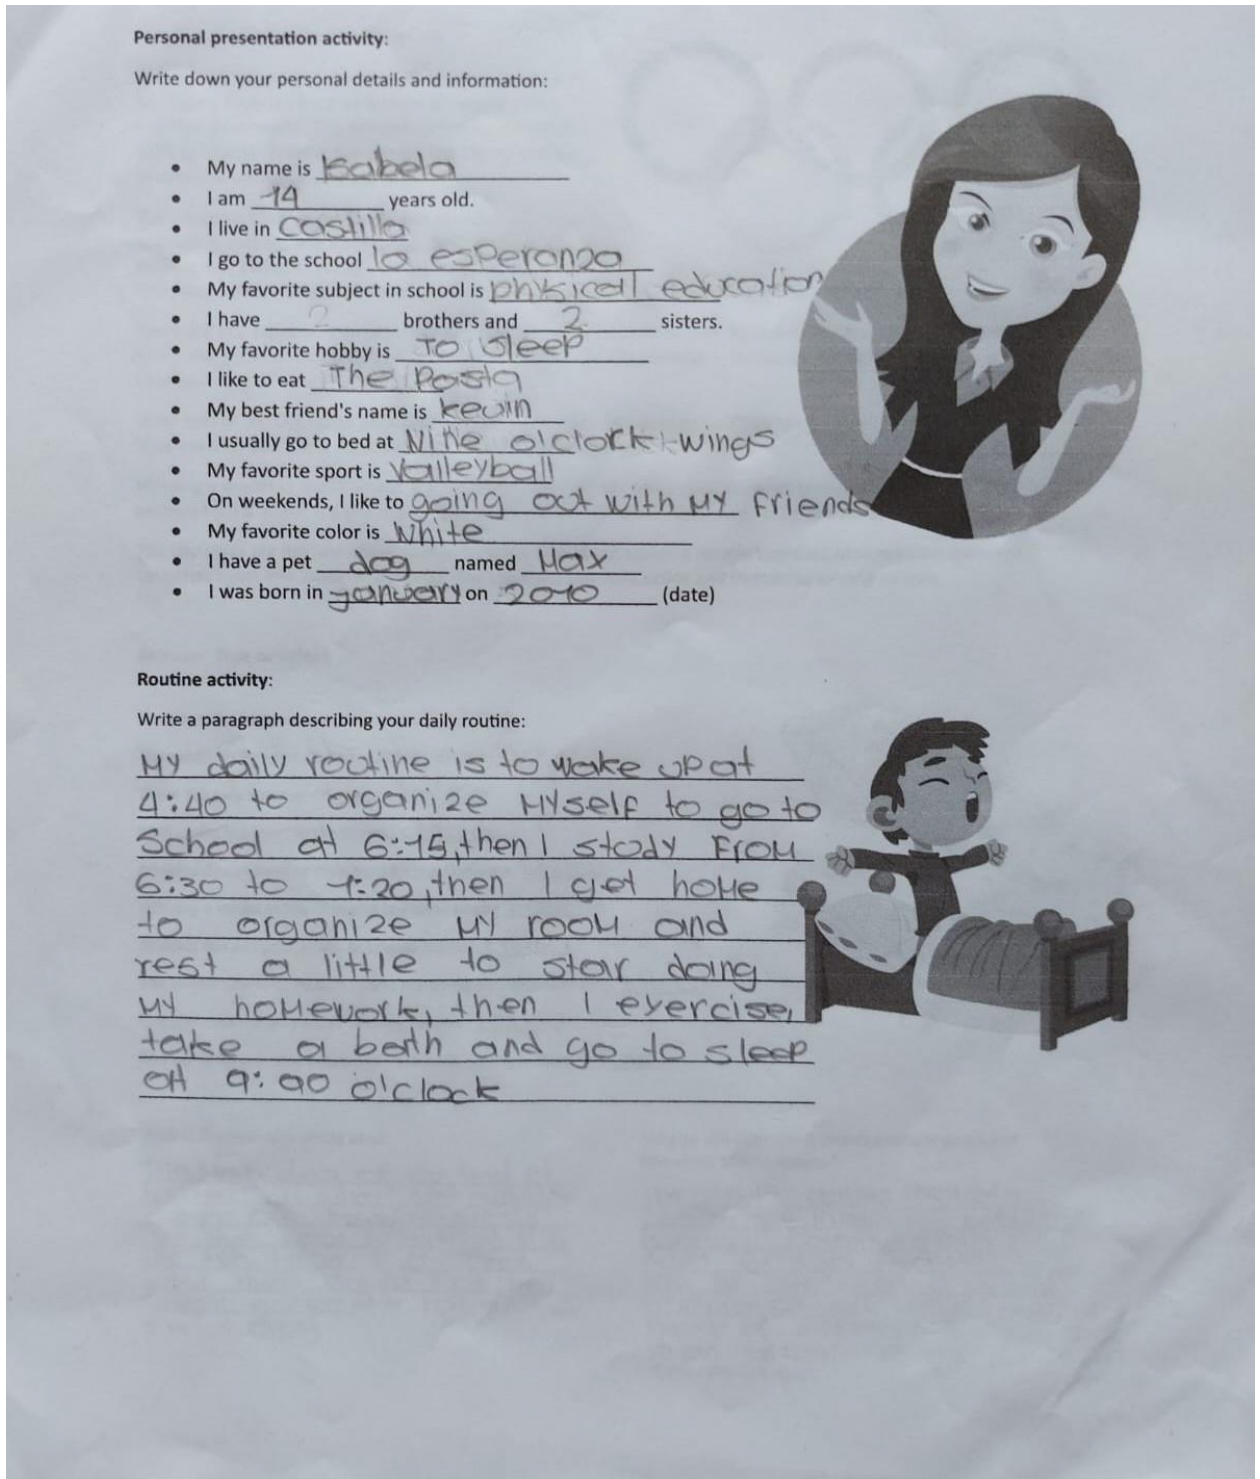 Personal presentation activity:
Write down your personal details and information:
• My name is Isabela
• I am 14 years old.
• I live in Costilla
• I go to the school la esperanza
• My favorite subject in school is physical education
• I have brothers and 2 sisters.
• My favorite hobby is To sleep
• I like to eat The Pasta
• My best friend's name is kevin
• I usually go to bed at Nine o'clock -wings
• My favorite sport is Valleyball
• On weekends, I like to going out with my friends
• My favorite color is White
• I have a pet dog named Max
• I was born in yanuary on 2010 (date)
Routine activity:
Write a paragraph describing your daily routine:
My daily routine is to wake up at
4:40 to organize Myself to go to
School at 6:15, then I study From
6:30 to 1:20, then I get home
to organize my room and
rest a little to star doing
my homework, then I exercise,
take a bath and go to sleep
at 9:00 o'clock